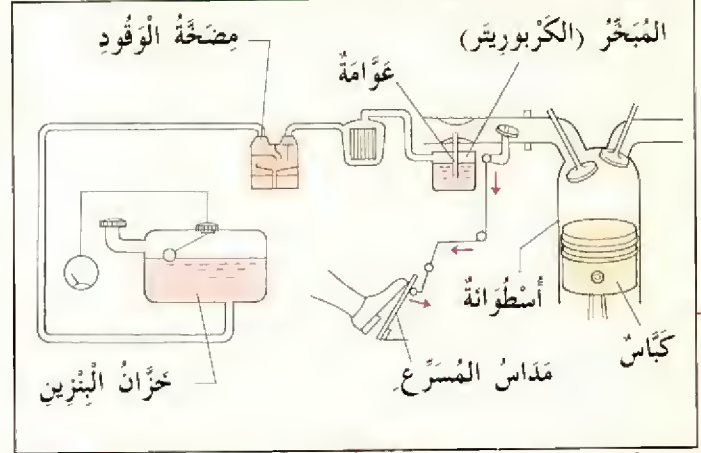 المُبَخِّرُ (الكَرْبورِيتَر)
مِضَخَّةُ الْوَقُودِ
عَوَّامَةٌ
أُسْطُوَانَةٌ
كَبَّاسٌ
مَدَاسُ المُسَرِّعِ
خَزَّانُ الْبِنْزِينِ